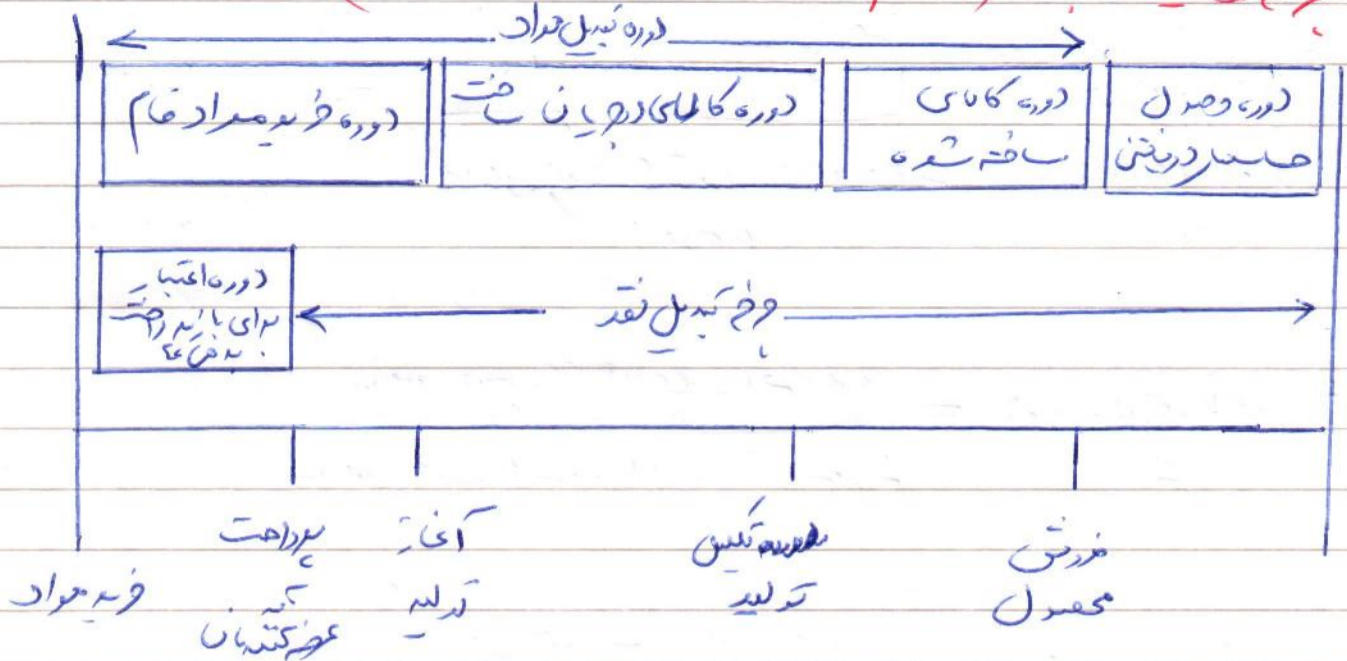 دوره تبدیل مواد
دوره وصول
حسابهای دریافتنی
دوره کالای
ساخته شده
دوره کالاهای در جریان ساخت
دوره خرید مواد خام
دوره اعتبار
برای باز پرداخت
چرخ تبدیل نقد
خرید مواد
پرداخت
به
عرضه کنندگان
آغاز
تولید
تکمیل
تولید
فروش
محصول